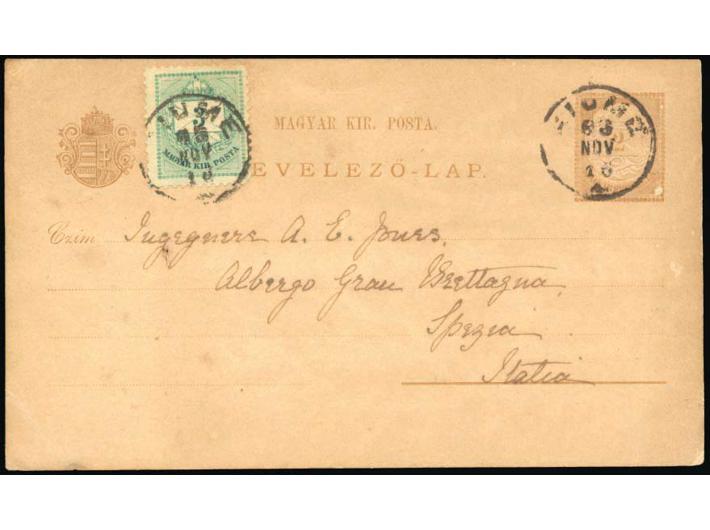 MAGYAR KIR. POSTA.
EVELEZŐ-LAP.
3
MAGYAR KIR. POSTA
FIUME
NOV
16
FIUME
NOV
16
2
Czim
Ingegnere A. E. Jones.
Albergo Gran Brettagna,
Spezia
Italia